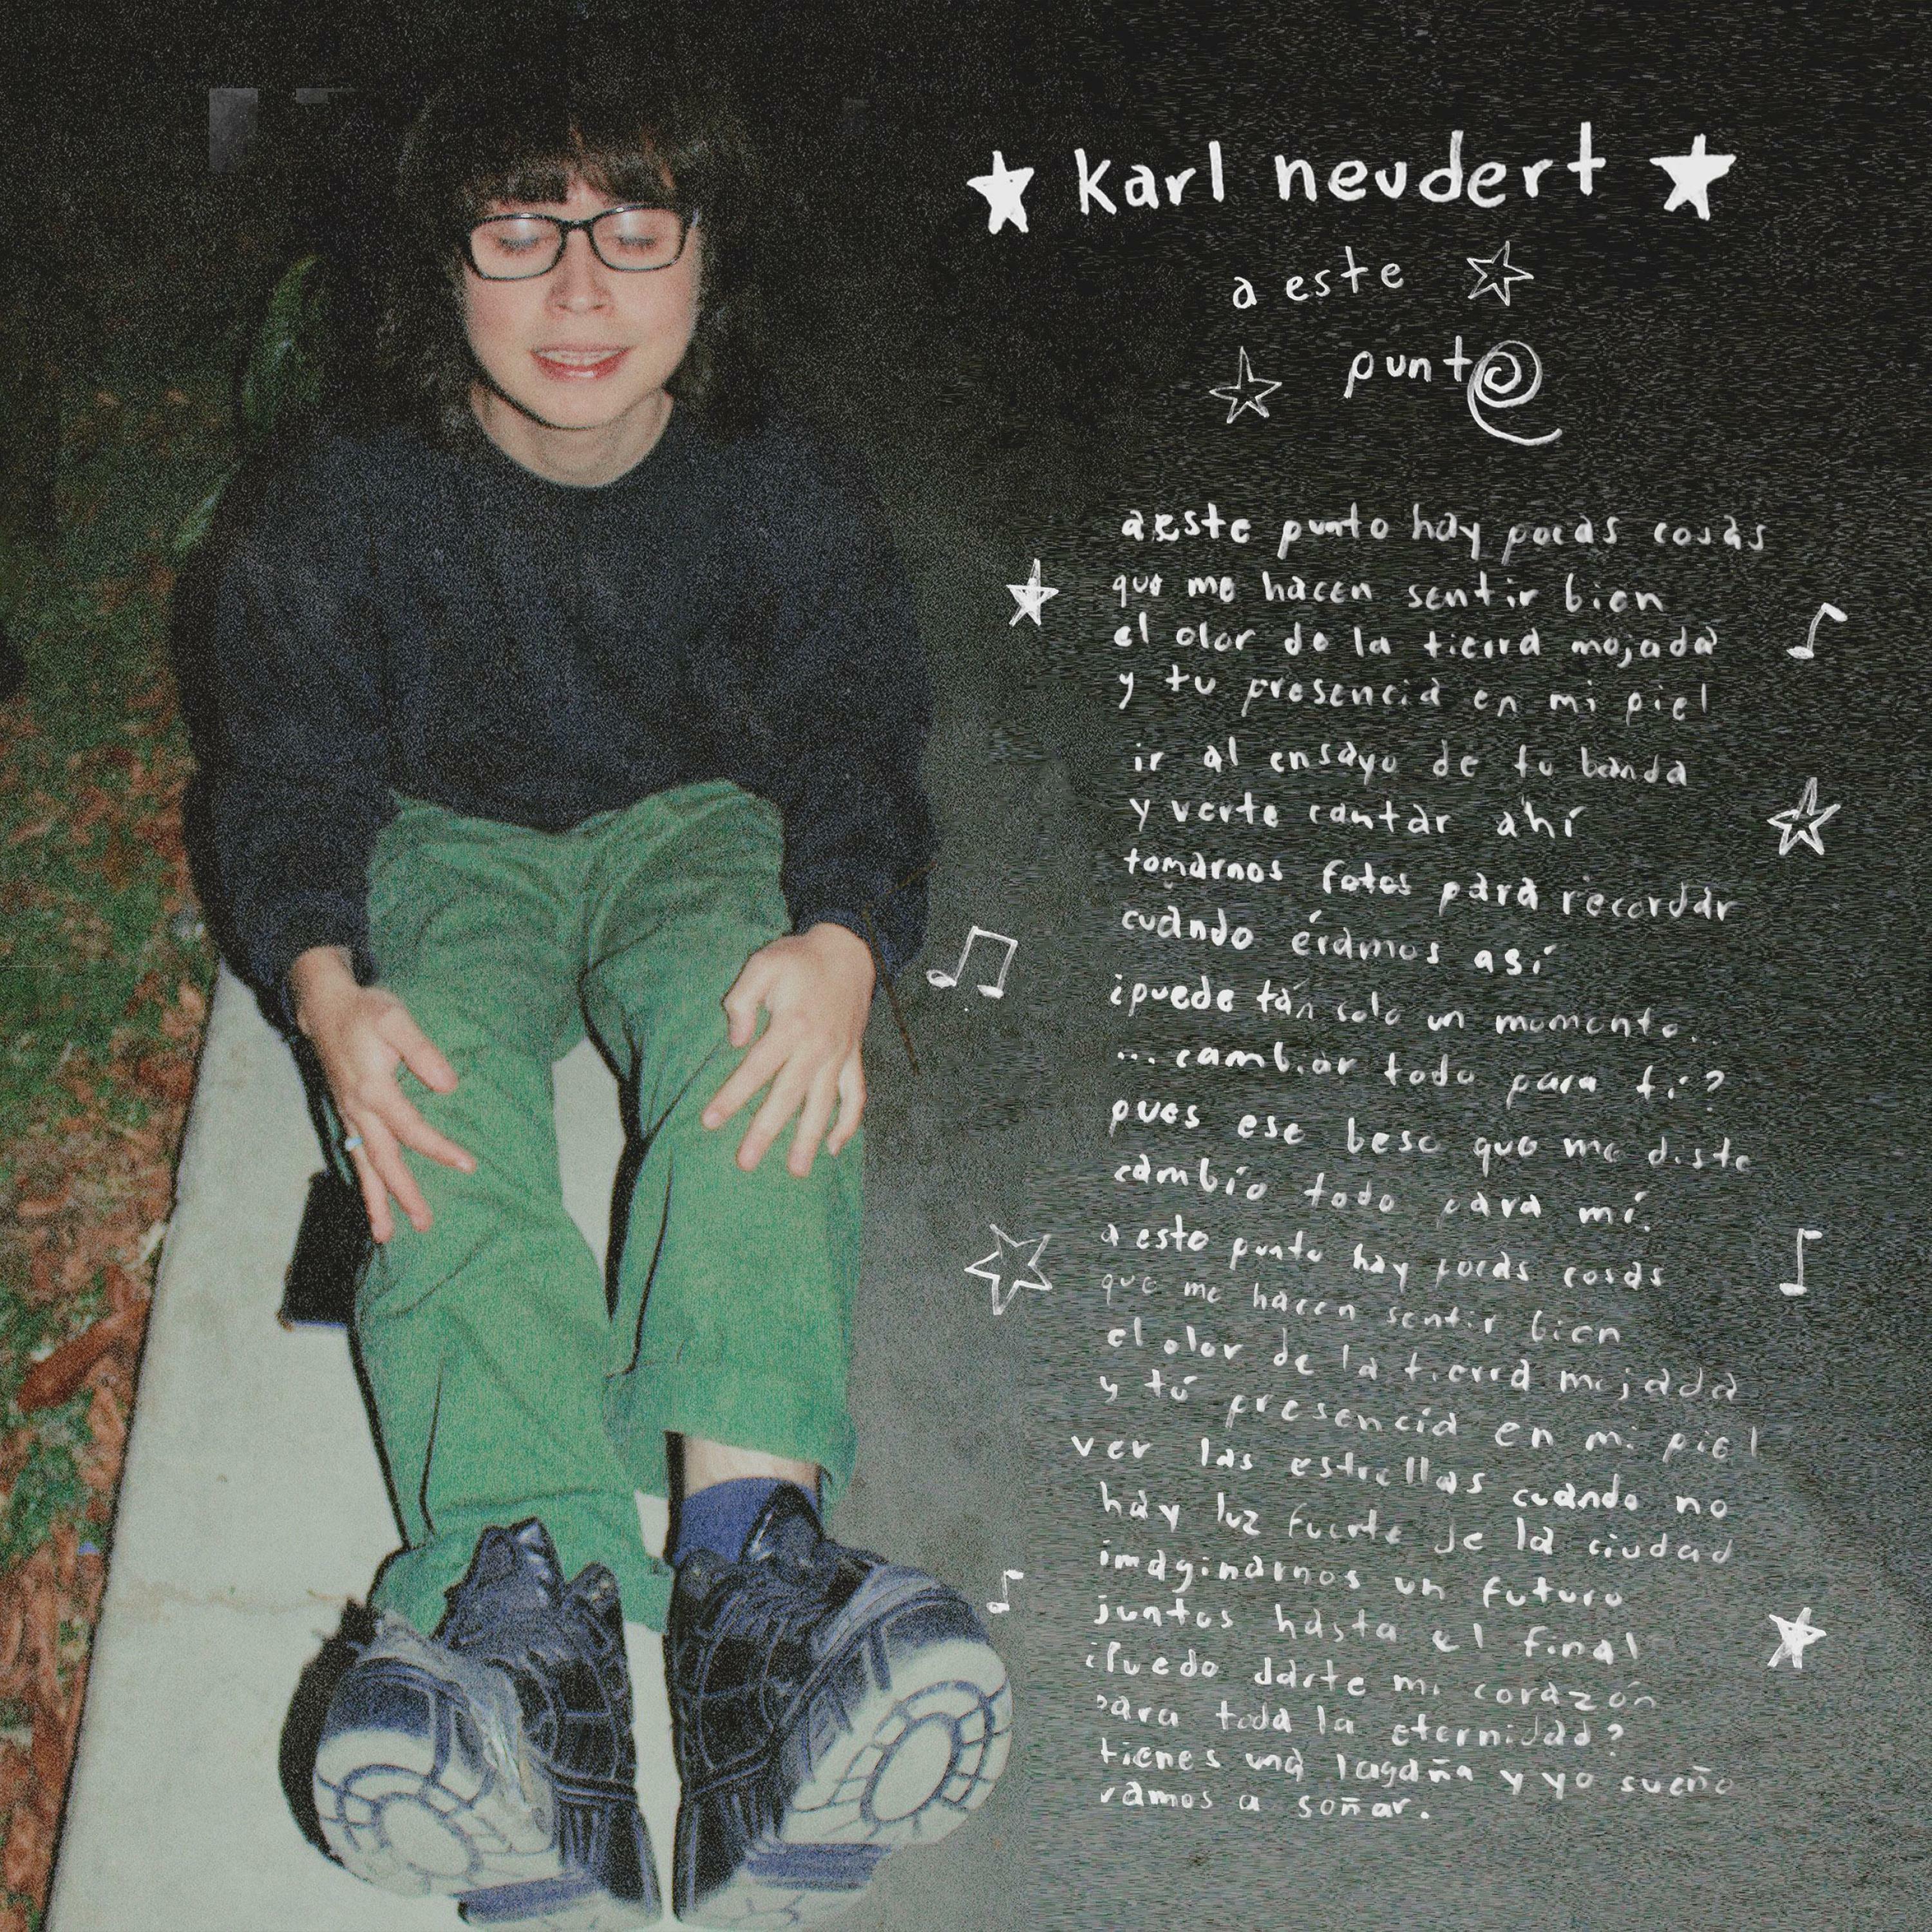 karl neudert
a este
punto
a este punto hay pocas cosas
que me hacen sentir bien
el olor de la tierra mojada
y tu presencia en mi piel
ir al ensayo de tu banda
y verte cantar ahí
tomarnos fotos para recordar
cuando éramos así
¿puede tán solo un momento...
...cambiar todo para tí?
pues ese beso que me diste
cambío todo para mí.
a este punto hay pocas cosas
que me hacen sentir bien
el olor de la tierra mojada
y tú presencia en mi piel
ver las estrellas cuando no
hay luz fuerte de la ciudad
imaginarnos un futuro
juntos hasta el final
¿Puedo darte mi corazón
para toda la eternidad?
tienes una lagaña y yo sueño
vamos a soñar.